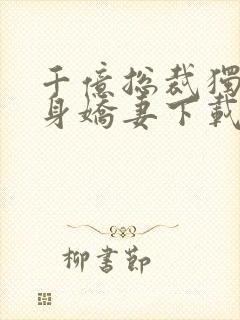 千億总裁獨
身嬌妻下載
柳書節